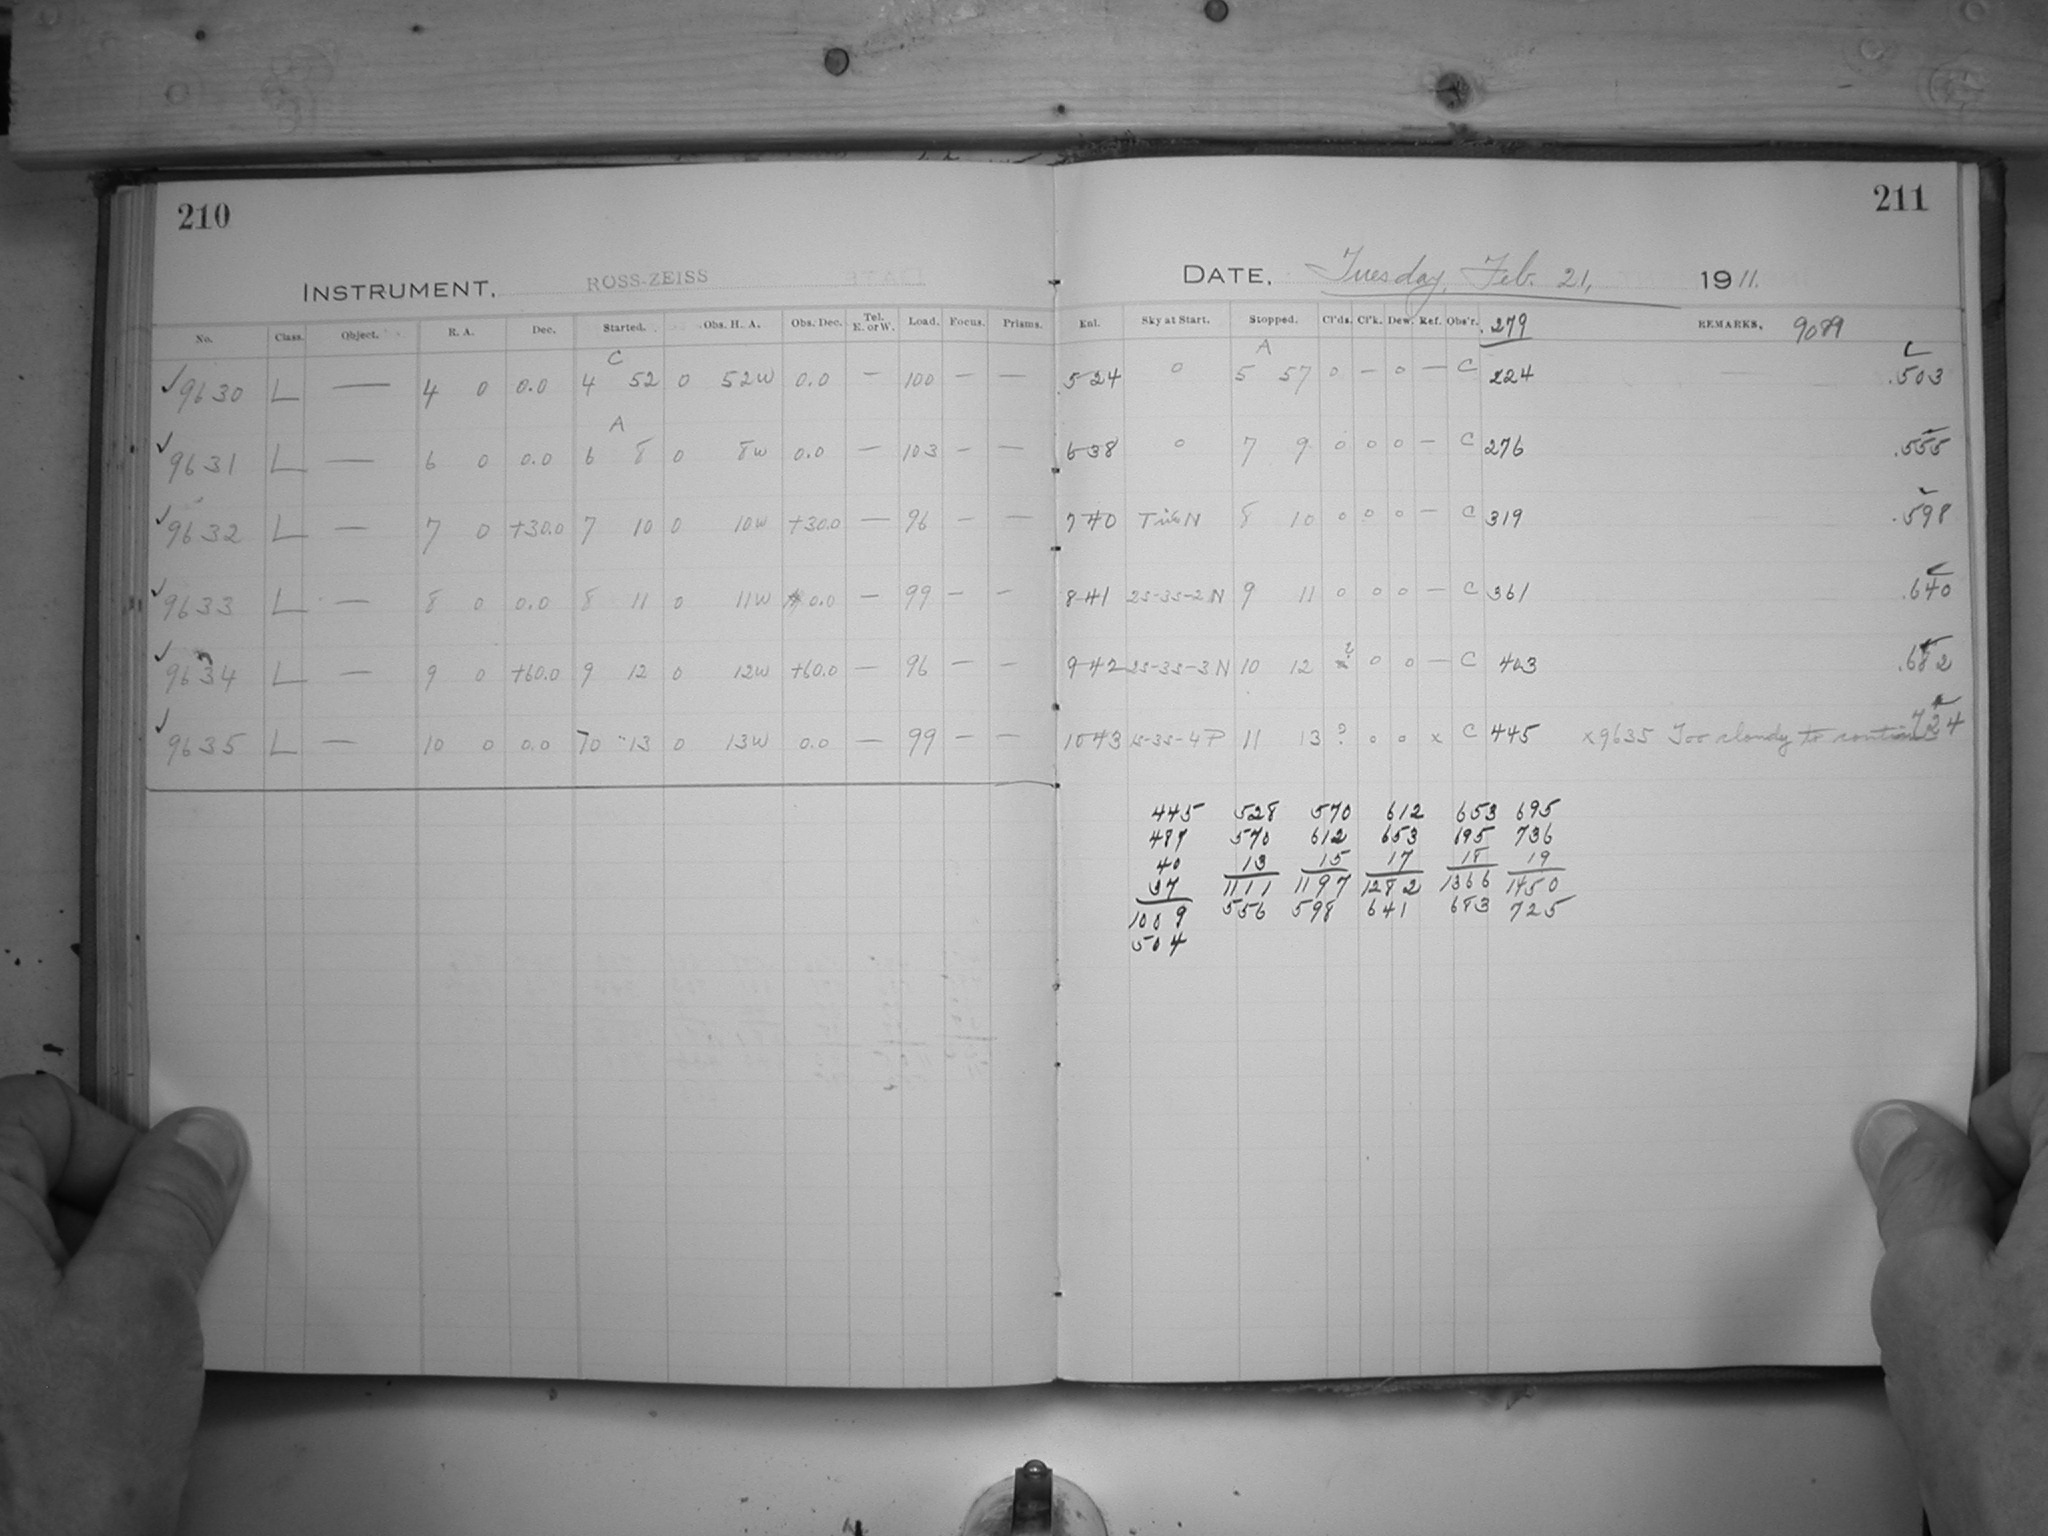 210
211
INSTRUMENT, ROSS-ZEISS
DATE, Tuesday, Feb. 21, 1911.
No. Class. Object. R. A. Dec. Started. Obs. H. A. Obs. Dec. Tel. E. or W. Load. Focus. Prisms. Enl. Sky at Start. Stopped. Cl'ds. Cl'k. Dew. Ref. Obs'r. .279 REMARKS, 9089
C A
✓ 9630 L — 4 0 0.0 4 52 0 52W 0.0 — 100 — — 524 0 5 57 0 — 0 — C 224 .503
A
✓ 9631 L — 6 0 0.0 6 8 0 8W 0.0 — 103 — — 638 0 7 9 0 0 0 — C 276 .555
✓ 9632 L — 7 0 +30.0 7 10 0 10W +30.0 — 96 — — 740 N 8 10 0 0 0 — C 319 .598
✓ 9633 L — 8 0 0.0 8 11 0 11W 0.0 — 99 — — 841 2S-3S-2N 9 11 0 0 0 — C 361 .640
✓ 9634 L — 9 0 +60.0 9 12 0 12W +60.0 — 96 — — 942 2S-3S-3N 10 12 ? 0 0 — C 403 .682
✓ 9635 L — 10 0 0.0 10 13 0 13W 0.0 — 99 — — 1043 1S-3S-4P 11 13 ? 0 0 x C 445 x9635 Too cloudy to continue 724
445 528 570 612 653 695
487 570 612 653 695 736
40 13 15 17 18 19
37 1111 1197 1282 1366 1450
1009 556 598 641 683 725
504